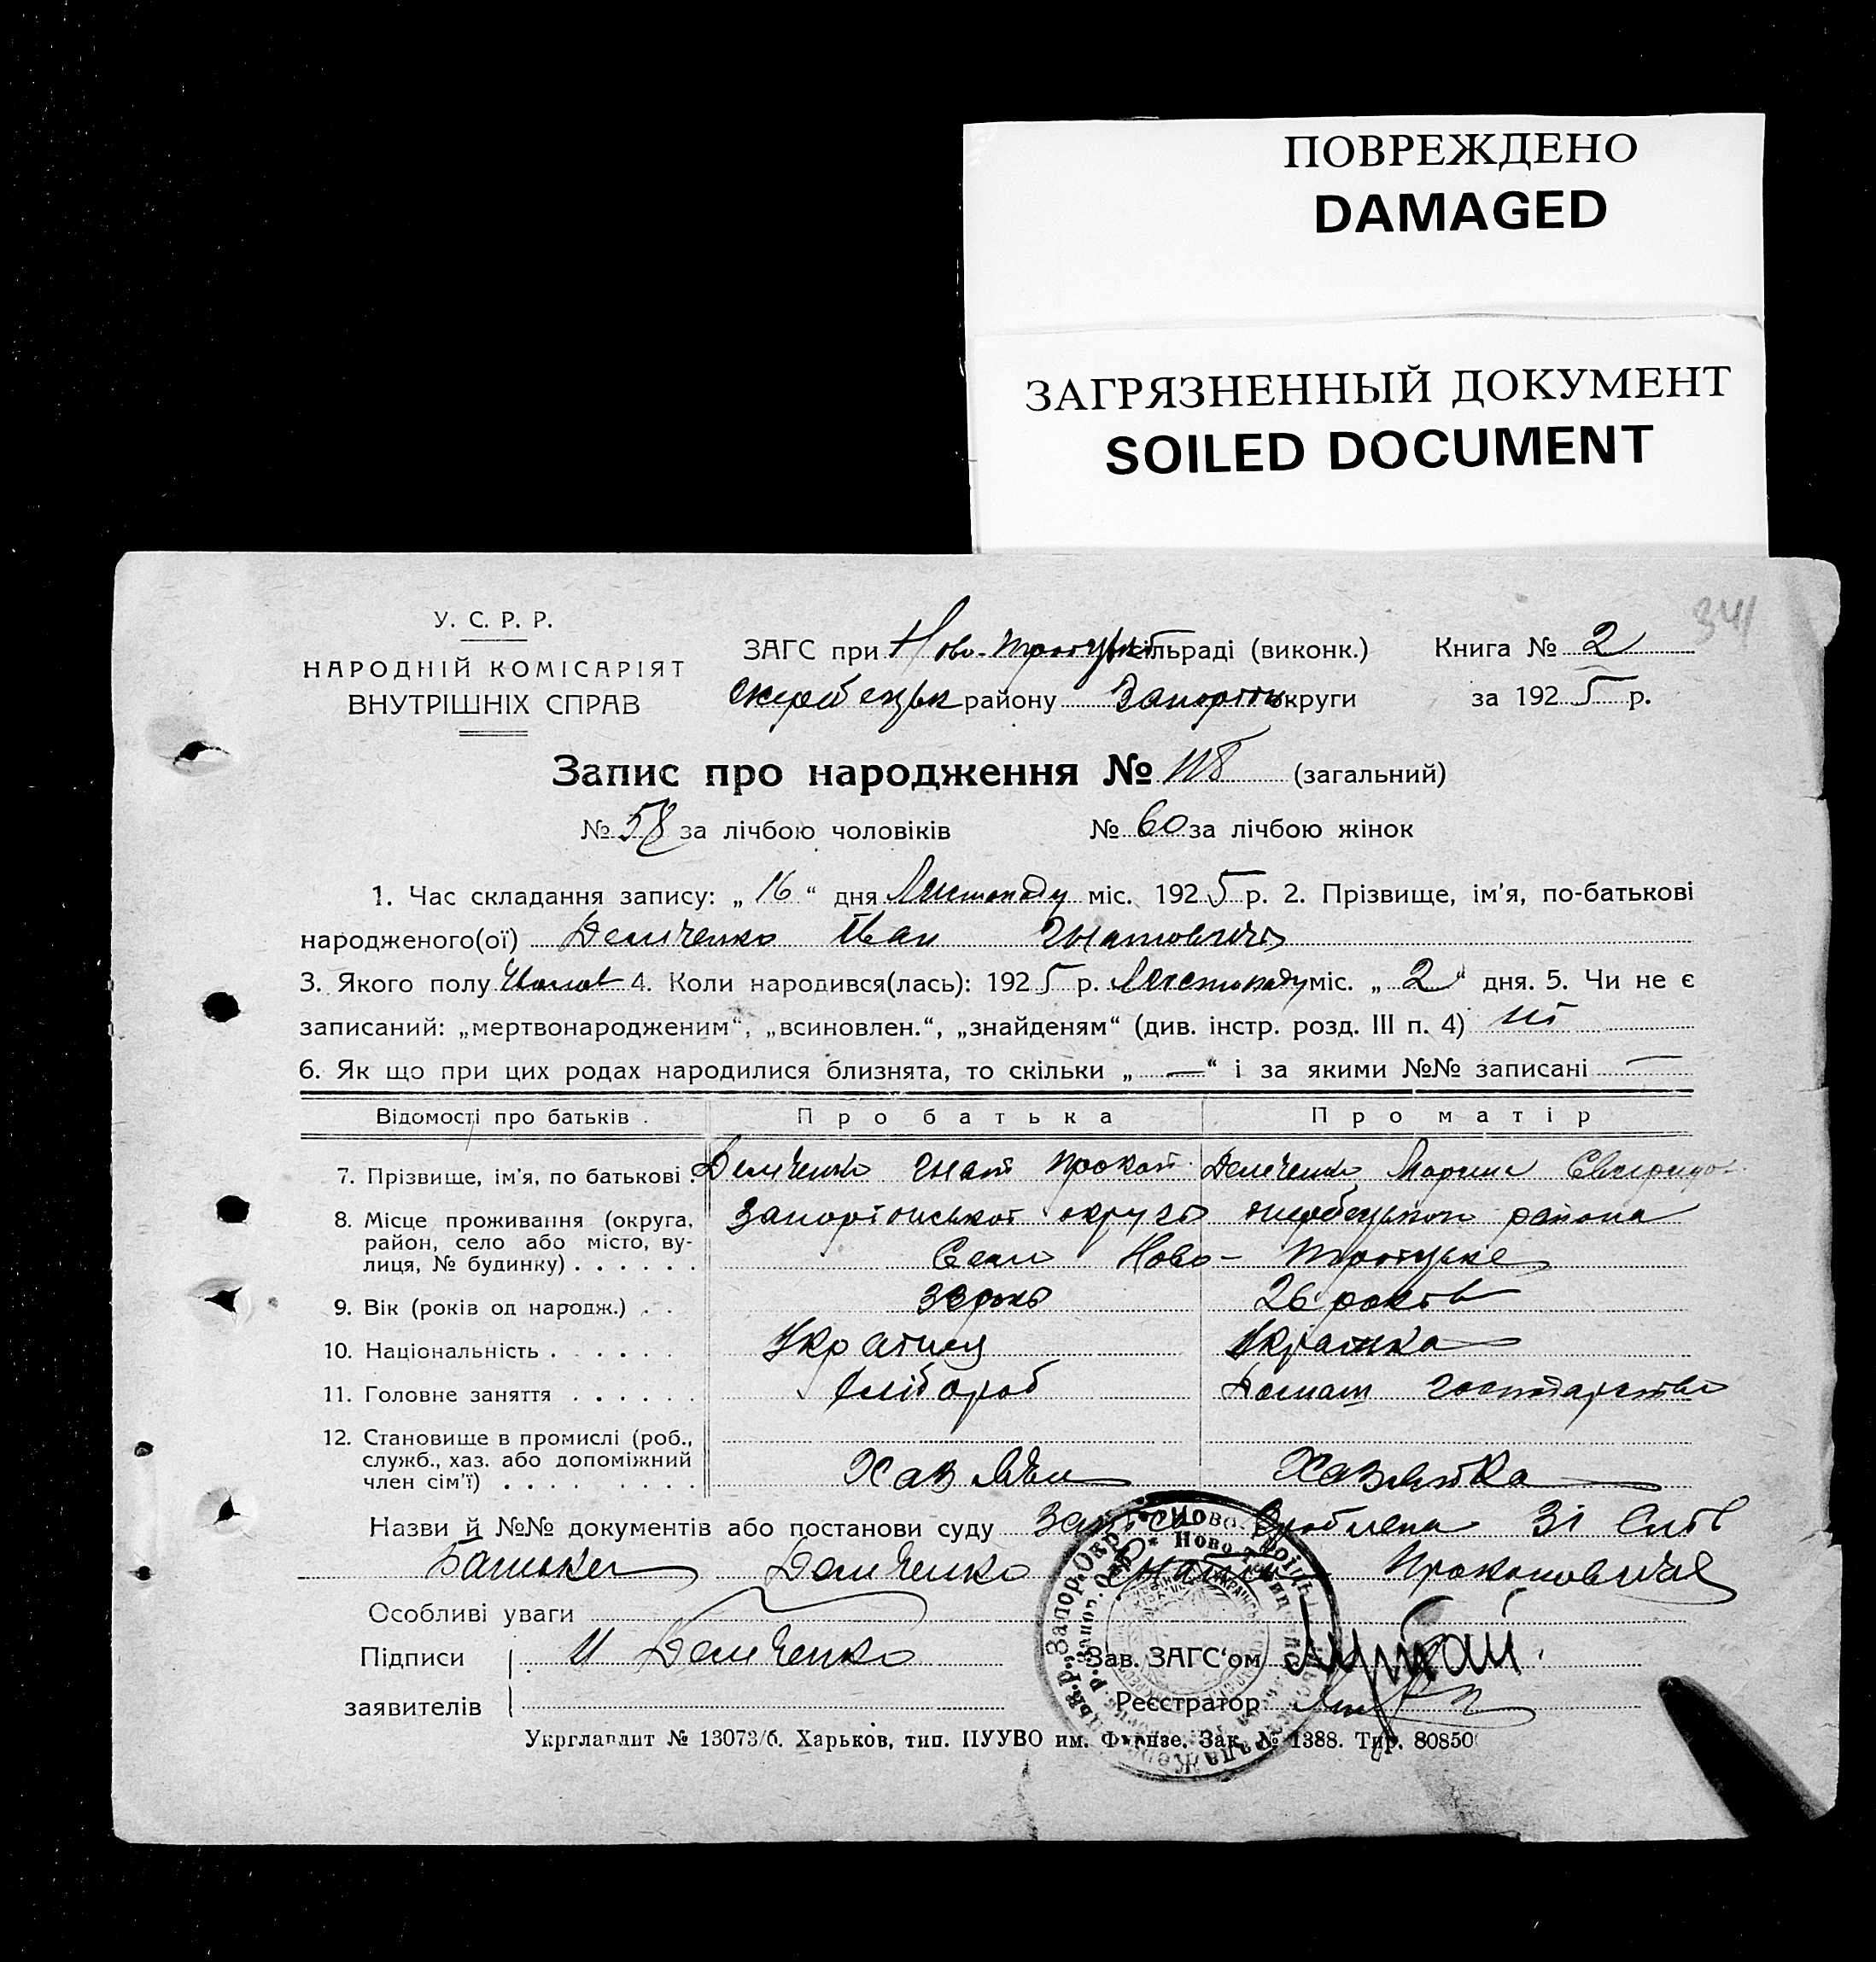 ПОВРЕЖДЕНО
DAMAGED
ЗАГРЯЗНЕННЫЙ ДОКУМЕНТ
SOILED DOCUMENT
341
У. С. Р. Р.
НАРОДНІЙ КОМІСАРІЯТ
ВНУТРІШНІХ СПРАВ
ЗАГС при Ново-Троїцькій сільраді (виконк.) Книга № 2
району Запоріжь округи за 1925 р.
Запис про народження № 118 (загальний)
№ 58 за лічбою чоловіків № 60 за лічбою жінок
1. Час складання запису: „ 16 “ дня Листопаду міс. 1925 р. 2. Прізвище, ім'я, по-батькові
народженого(ої) Демченко Іван Гнатович
3. Якого полу Чолов 4. Коли народився(лась): 1925 р. Листопаду міс. „ 2 “ дня. 5. Чи не є
записаний: „мертвонародженим“, „всиновлен.“, „знайденям“ (див. інстр. розд. III п. 4) ні
6. Як що при цих родах народилися близнята, то скільки „ — “ і за якими №№ записані —
Відомості про батьків. Про батька Про матір
7. Прізвище, ім'я, по батькові. Демченко Гнат Прокоп. Демченко Марина
8. Місце проживання (округа, район, село або місто, вулиця, № будинку) . . . . . . Запоріжської округи Жеребецького района
Село Ново-Троїцьке
9. Вік (років од народж.) . . 26 років
10. Національність . . . . . . Українец Українка
11. Головне заняття . . . . . . Хлібороб Домаш господарство
12. Становище в промислі (роб., служб., хаз. або допоміжний член сім'ї) . . . . . . . . Хазяїн Хазяйка
Назви й №№ документів або постанови суду Запись зроблена зі слів
Батька Демченко Гната Прокоповича
Особливі уваги
Підписи И Демченко Зав. ЗАГС‘ом
заявителів Реєстратор
Укрглавлит № 13073/б. Харьков, тип. ПУУВО им. Фрунзе. Зак. № 1388. Тир. 80850